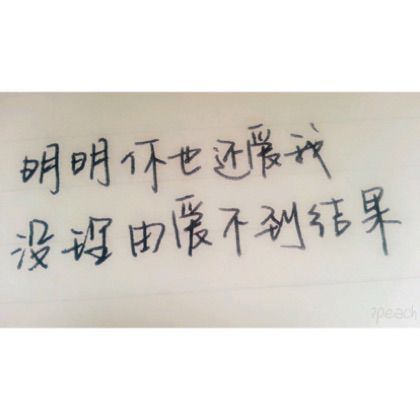 明明你也还爱我
没理由爱不到结果
?peach